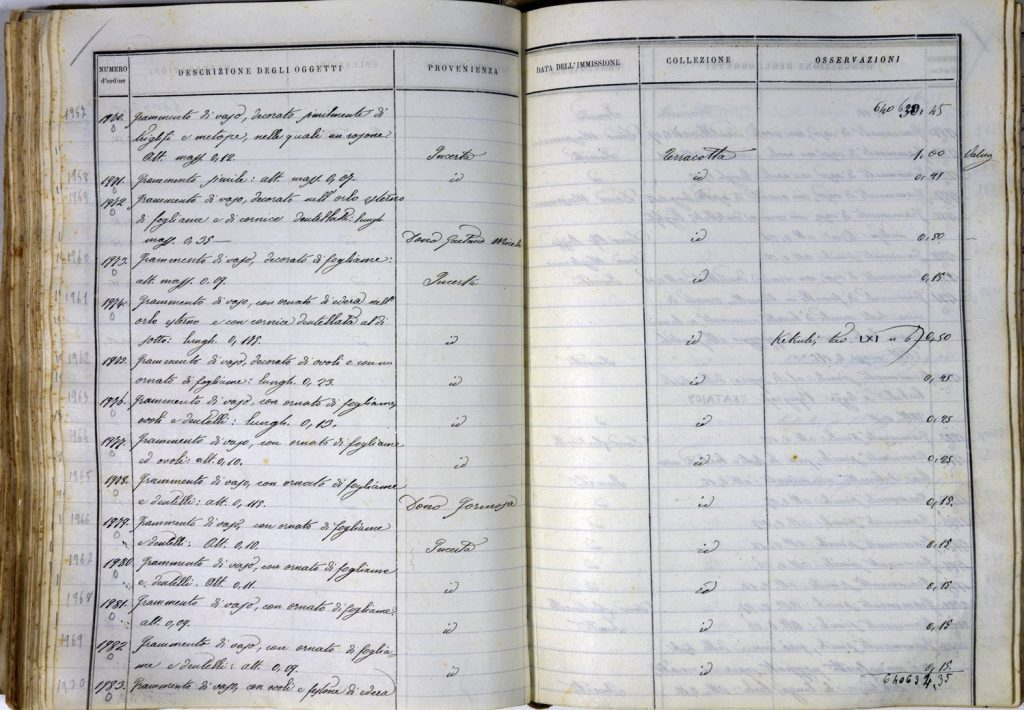 NUMERO d'ordine
DESCRIZIONE DEGLI OGGETTI
PROVENIENZA
DATA DELL'IMMISSIONE
COLLEZIONE
OSSERVAZIONI
1970. Frammento di vaso, decorato similmente di
triglifi e metope, nelle quali un rosone
Alt. mass. 0,12. Incerta Terracotta 1,00
1971. Frammento simile: alt. mass. 0,07. id id
1972 Frammento di vaso, decorato nell'orlo esterno
di fogliame e di cornice dentellata: lungh
mass. 0,35 — Dono Gaetano id 0,50
1973. Frammento di vaso, decorato di fogliame:
alt. mass. 0,09. Incerta id 0,15
1974. Frammento di vaso, con ornato di edera nell'
orlo esterno e con cornice dentellata al di
sotto: lungh. id id Kekulé, tav. LXI n 6 0,50
1975. Frammento di vaso, decorato di ovoli e con un
ornato di fogliame: lungh. 0,23. id id
1976. Frammento di vaso, con ornato di fogliame,
ovoli e dentelli: lungh. 0,13. id id 0,25
1977. Frammento di vaso, con ornato di fogliame
ed ovoli: alt. 0,10. id id 0,25
1978. Frammento di vaso, con ornato di fogliame
e dentelli: alt. Dono Formosa id 0,15
1979. Frammento di vaso con ornato di fogliame
e dentelli: Alt. 0,10. Incerta id 0,15
1980 Frammento di vaso, con ornato di fogliame
e dentelli. Alt. 0,11. id id 0,15
1981. Frammento di vaso, con ornato di fogliame:
alt. 0,09. id id 0,15
1982. Frammento di vaso, con ornato di foglia-
me e dentelli: alt. 0,09. id id 0,15
1983. Frammento di vaso, con ovoli e festone di edera